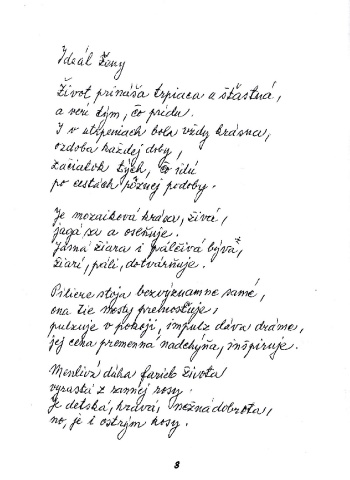 Ideál ženy
Život prináša trpiaca a šťastná,
a verí tým, čo prídu.
I v utrpeniach bola vždy krásna,
ozdoba každej doby,
začiatok tých, čo idú
po cestách rôznej podoby.
Je mozaiková krása, živá,
jagá sa a oseňuje.
Jasná žiara i pálčivá býva,
žiari, páli, dotvárňuje.
Piliere stoja bezvýznamne samé,
ona tie mosty premosťuje,
pulzuje v pokoji, impulz dáva dráme,
jej cena premenná nadchýňa, inšpiruje.
Menlivá dúha farieb života
vyrastá z rannej rosy.
Je detská, hravá, nežná dobrota,
no, je i ostrým kosy.
8